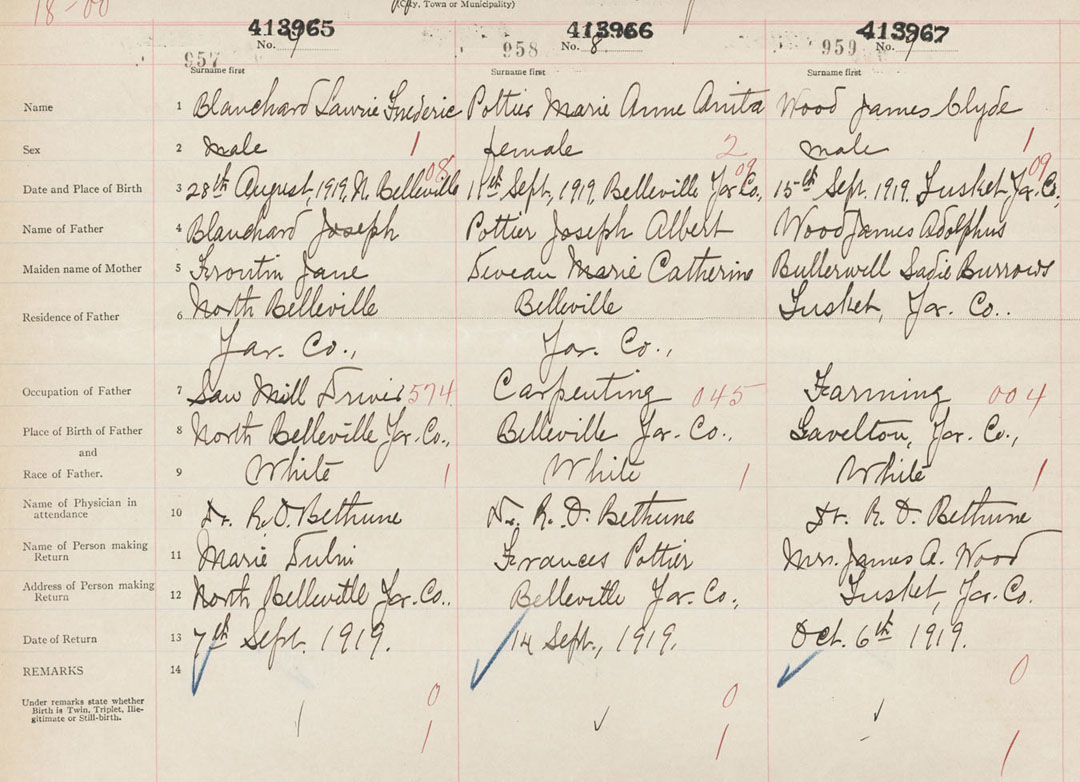 18-00
(City, Town or Municipality)
413965 413966 413967
No. 7 No. 8 No. 9
957 958 959
Surname first Surname first Surname first
Name 1 Blanchard Lawrie Frederic Pottier Marie Anne Anita Wood James Clyde
Sex 2 male 1 female 2 male 1
08 09 09
Date and Place of Birth 3 28th August, 1919, N. Belleville 11th Sept., 1919, Belleville Yar. Co., 15th Sept. 1919. Tusket, Yar. Co.,
Name of Father 4 Blanchard Joseph Pottier Joseph Albert Wood James Adolphus
Maiden name of Mother 5 Frontin Jane Deveau Marie Catherine Butlerwell Sadie Burrows
Residence of Father 6 North Belleville Belleville Tusket, Yar. Co..
Yar. Co., Yar. Co.,
Occupation of Father 7 Saw Mill Driver 574 Carpenting 045 Farming 004
Place of Birth of Father 8 North Belleville Yar. Co., Belleville Yar. Co., Gavelton, Yar. Co.,
and
Race of Father. 9 White 1 White 1 White 1
Name of Physician in
attendance 10 Dr. R. D. Bethune Dr. R. D. Bethune Dr. R. D. Bethune
Name of Person making
Return 11 Marie Frances Pottier Mrs. James A. Wood
Address of Person making
Return 12 North Belleville Yar. Co.. Belleville Yar. Co., Tusket, Yar. Co.
Date of Return 13 7th Sept. 1919. 14 Sept., 1919. Oct. 6th 1919.
REMARKS 14
0 0 0
Under remarks state whether
Birth is Twin, Triplet, Ille-
gitimate or Still-birth.
1 1 1